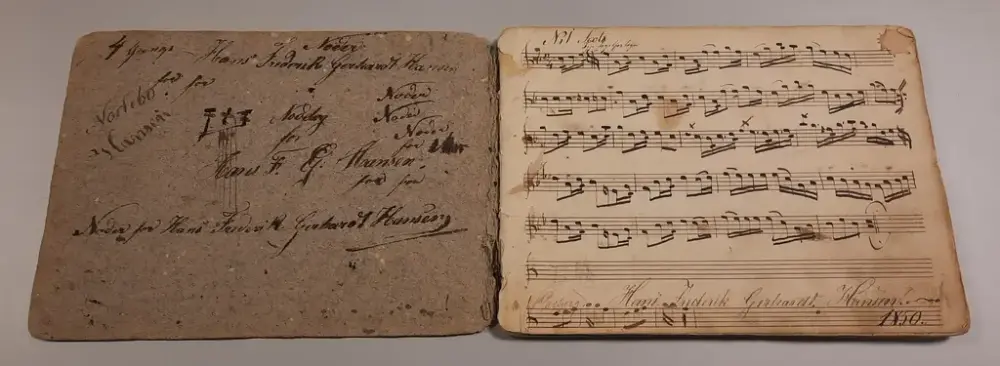 4 Gange
Noder
Hans Frederik Gerhardt Hansen
for for
Hansen
Noder
Noder
Noder
for
Nodebog
for
Hans F. G. Hansen.
for for
Noder for Hans Frederik Gerhardt Hansen
No 1
Hans Frederik Gerhardt Hansen.
1850.